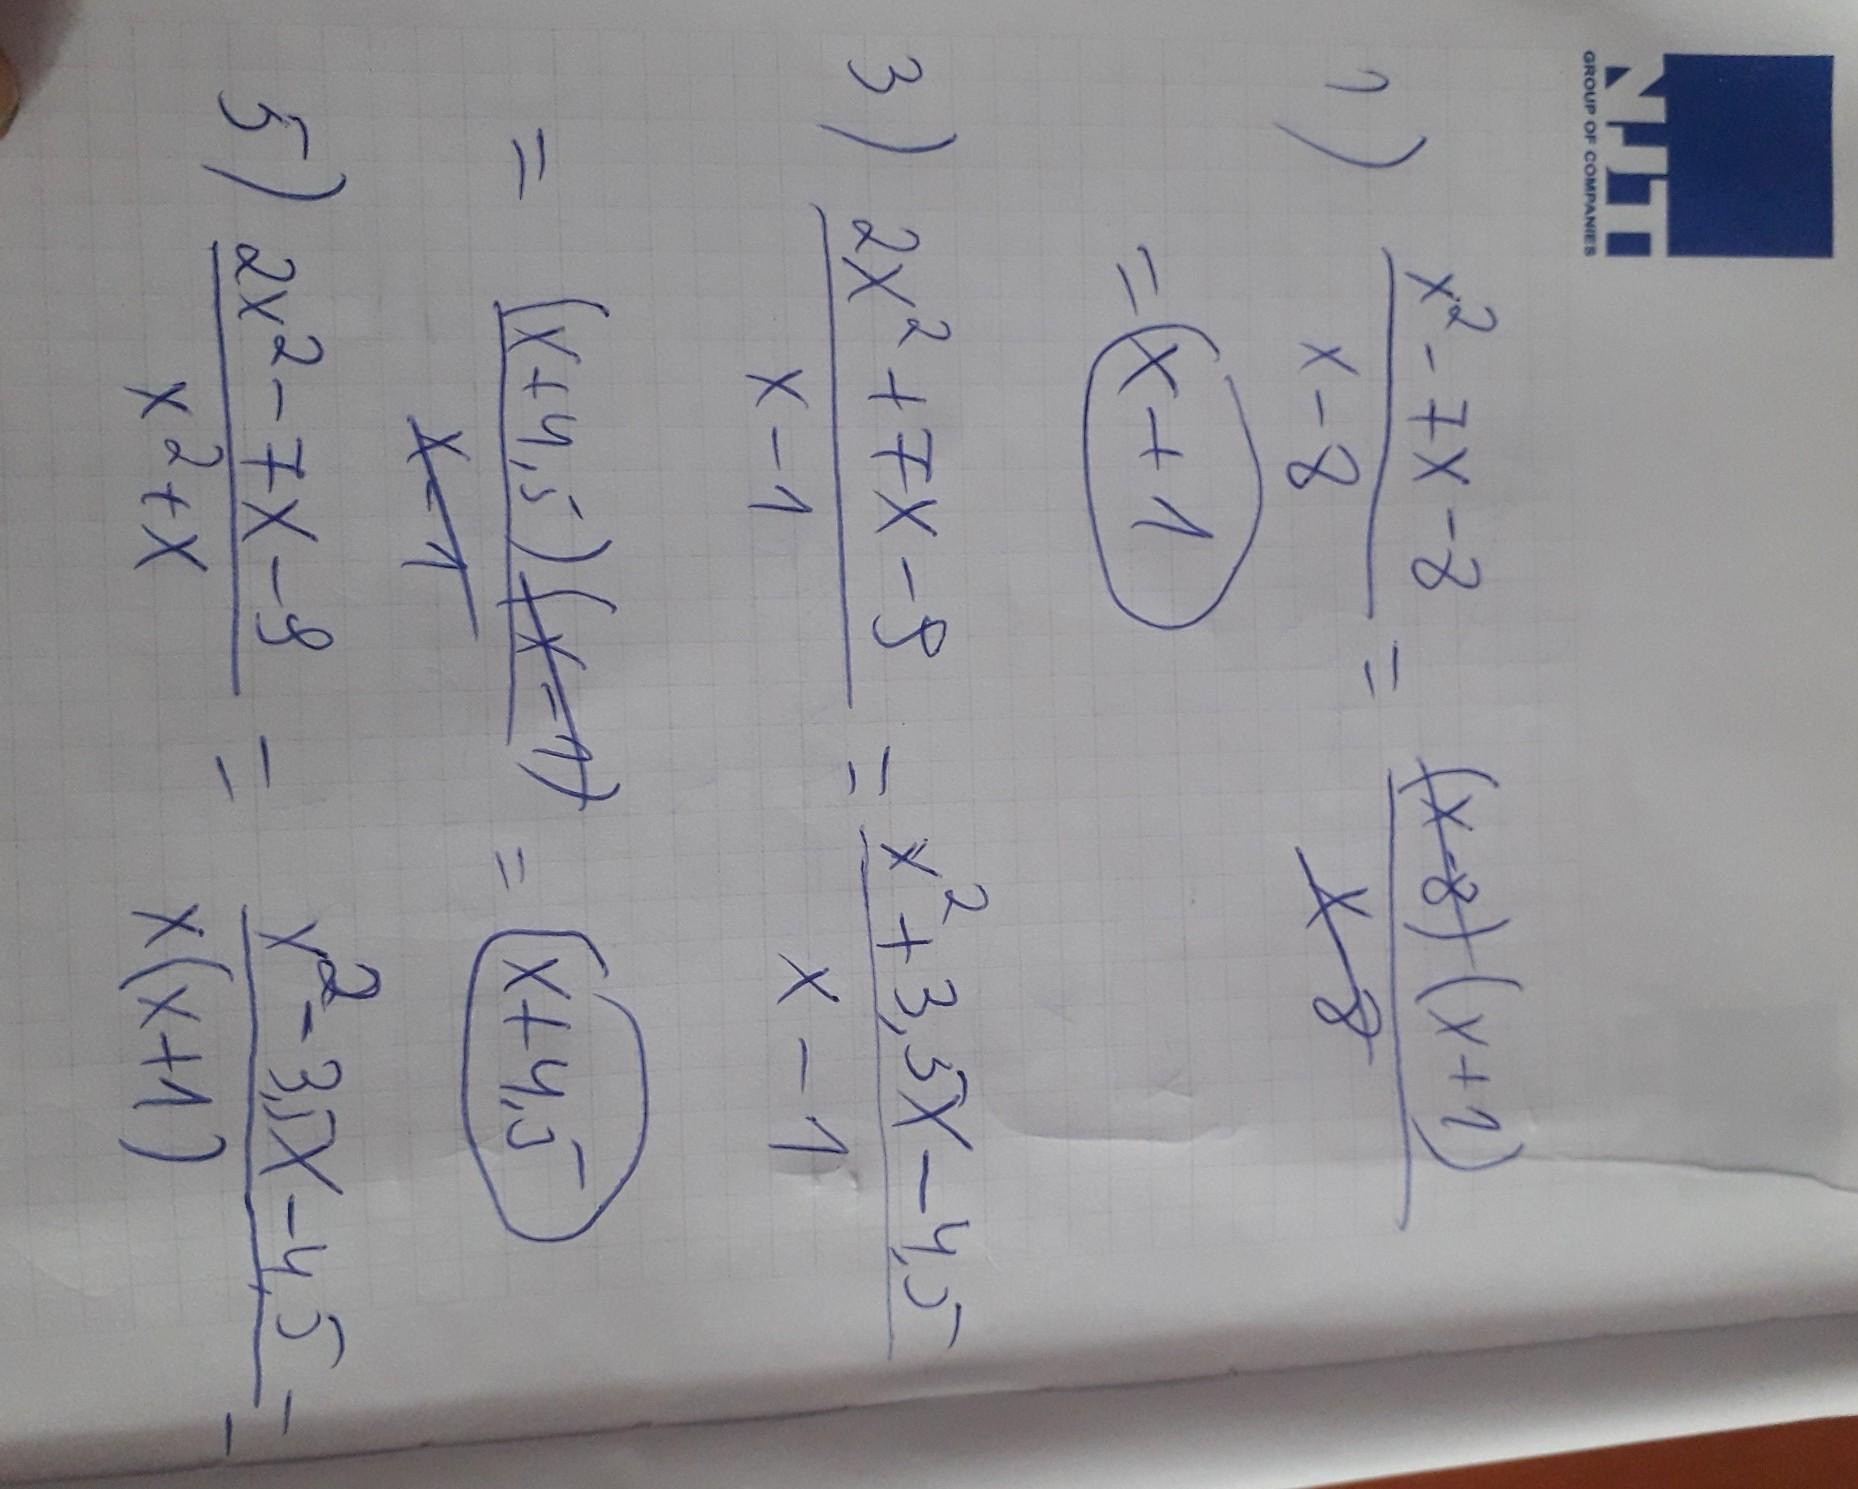 NTT
GROUP OF COMPANIES
1) (x² - 7x - 8)/(x - 8) = ((x-8)(x+1))/(x-8)
= x + 1
3) (2x² + 7x - 9)/(x - 1) = (x² + 3,5x - 4,5)/(x - 1)
= ((x+4,5)(x-1))/(x-1) = x+4,5
5) (2x² - 7x - 9)/(x² + x) = (x² - 3,5x - 4,5)/(x(x+1)) =